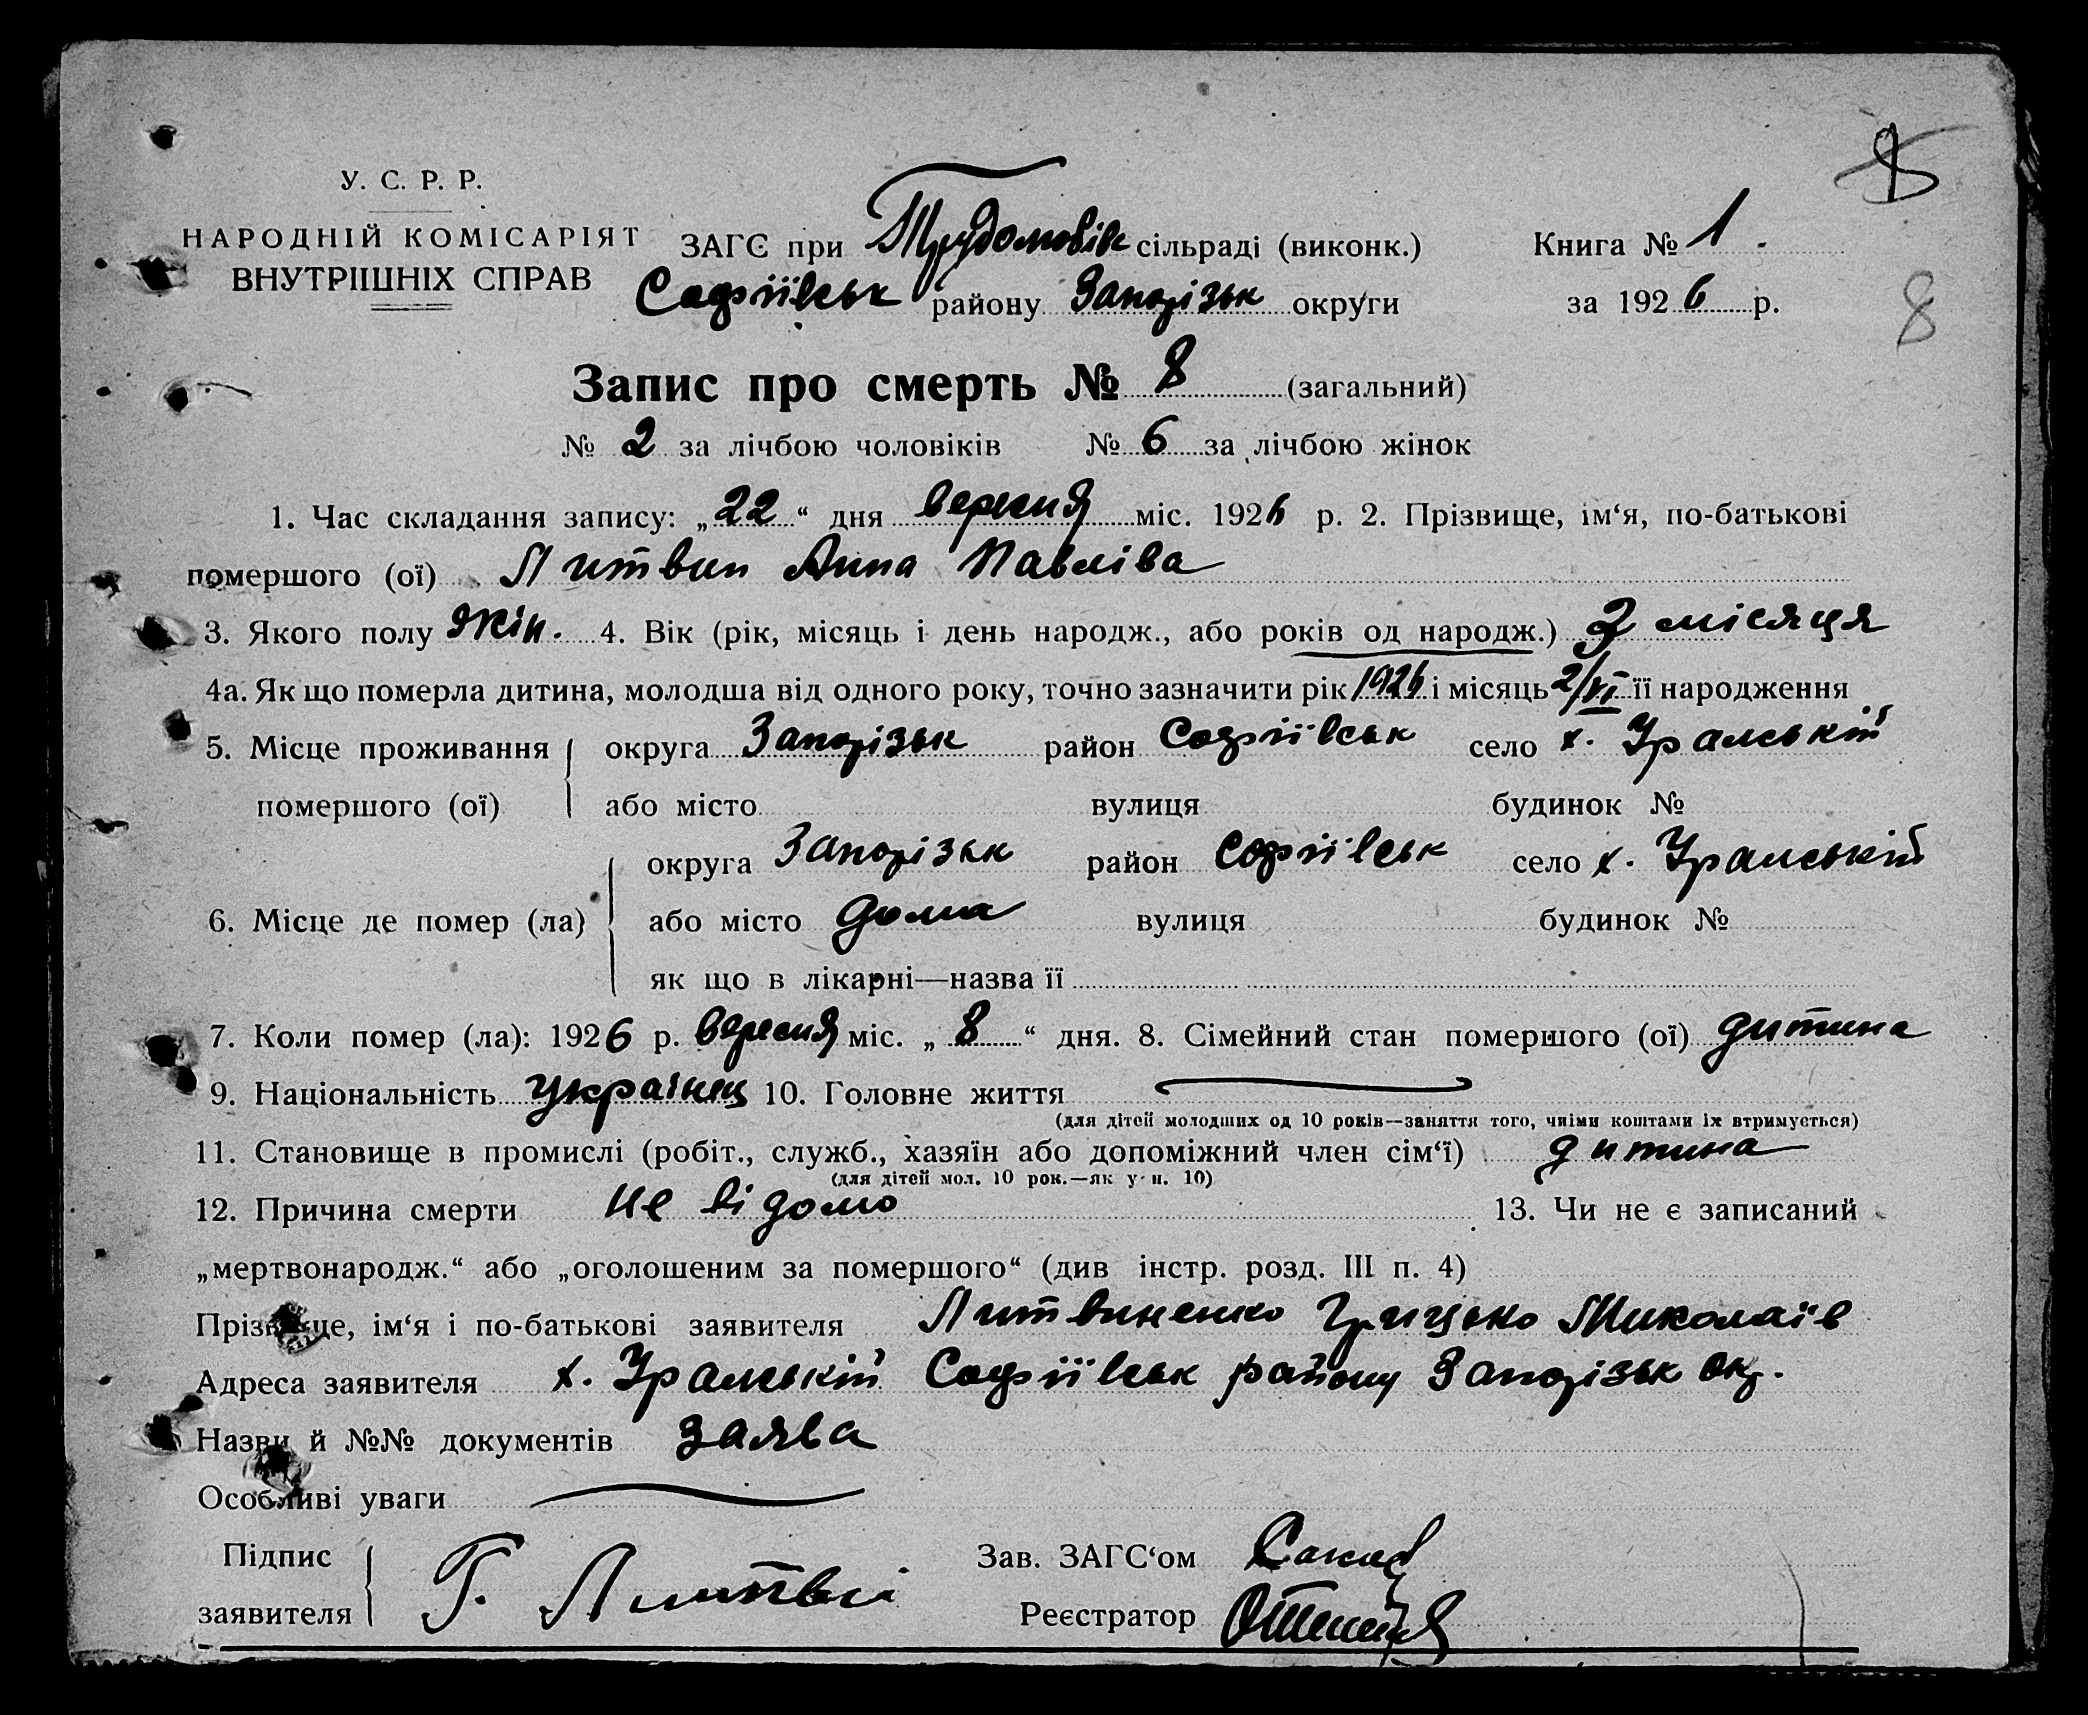 8
У. С. Р. Р.
НАРОДНІЙ КОМІСАРІЯТ
ВНУТРІШНІХ СПРАВ
ЗАГС при Трудомовік сільраді (виконк.) Книга № 1.
Софіївськ району Запорізьк округи за 1926 р.
8
Запис про смерть № 8 (загальний)
№ 2 за лічбою чоловіків № 6 за лічбою жінок
1. Час складання запису: „22“ дня вересня міс. 1926 р. 2. Прізвище, ім‘я, по-батькові
помершого (ої) Литвин Анна Павліва
3. Якого полу жін. 4. Вік (рік, місяць і день народж., або років од народж.) 2 місяця
4а. Як що померла дитина, молодша від одного року, точно зазначити рік 1926 і місяць 2/VI її народження
5. Місце проживання округа Запорізьк район Софіївськ село х. Уральскій
помершого (ої) або місто вулиця будинок №
округа Запорізьк район Софіївськ село х. Уральській
6. Місце де помер (ла) або місто дома вулиця будинок №
як що в лікарні—назва її
7. Коли помер (ла): 1926 р. вересня міс. „8“ дня. 8. Сімейний стан помершого (ої) дитина
9. Національність українец 10. Головне життя
(для дітей молодших од 10 років—заняття того, чиїми коштами їх втримується)
11. Становище в промислі (робіт., служб., хазяїн або допоміжний член сім‘ї) дитина
(для дітей мол. 10 рок.—як у п. 10)
12. Причина смерти не відомо 13. Чи не є записаний
„мертвонародж.“ або „оголошеним за помершого“ (див інстр. розд. III п. 4)
Прізвище, ім‘я і по-батькові заявителя Литвиненко Грицько Миколаїв
Адреса заявителя х. Уральскій Софіївськ району Запорізьк окр.
Назви й №№ документів заява
Особливі уваги
Підпис Зав. ЗАГС‘ом
заявителя Г. Литвін Реєстратор